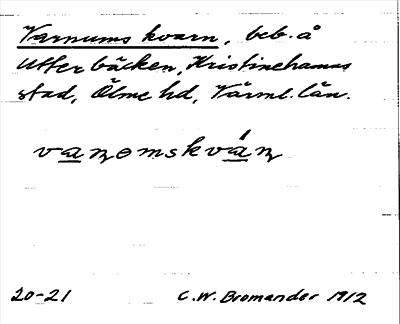 Varnums kvarn, beb. å
Utterbäcken, Kristinehamns
stad, Ölme hd, Värml. län.
vaɳomskváɳ
20-21 C.W. Bromander 1912